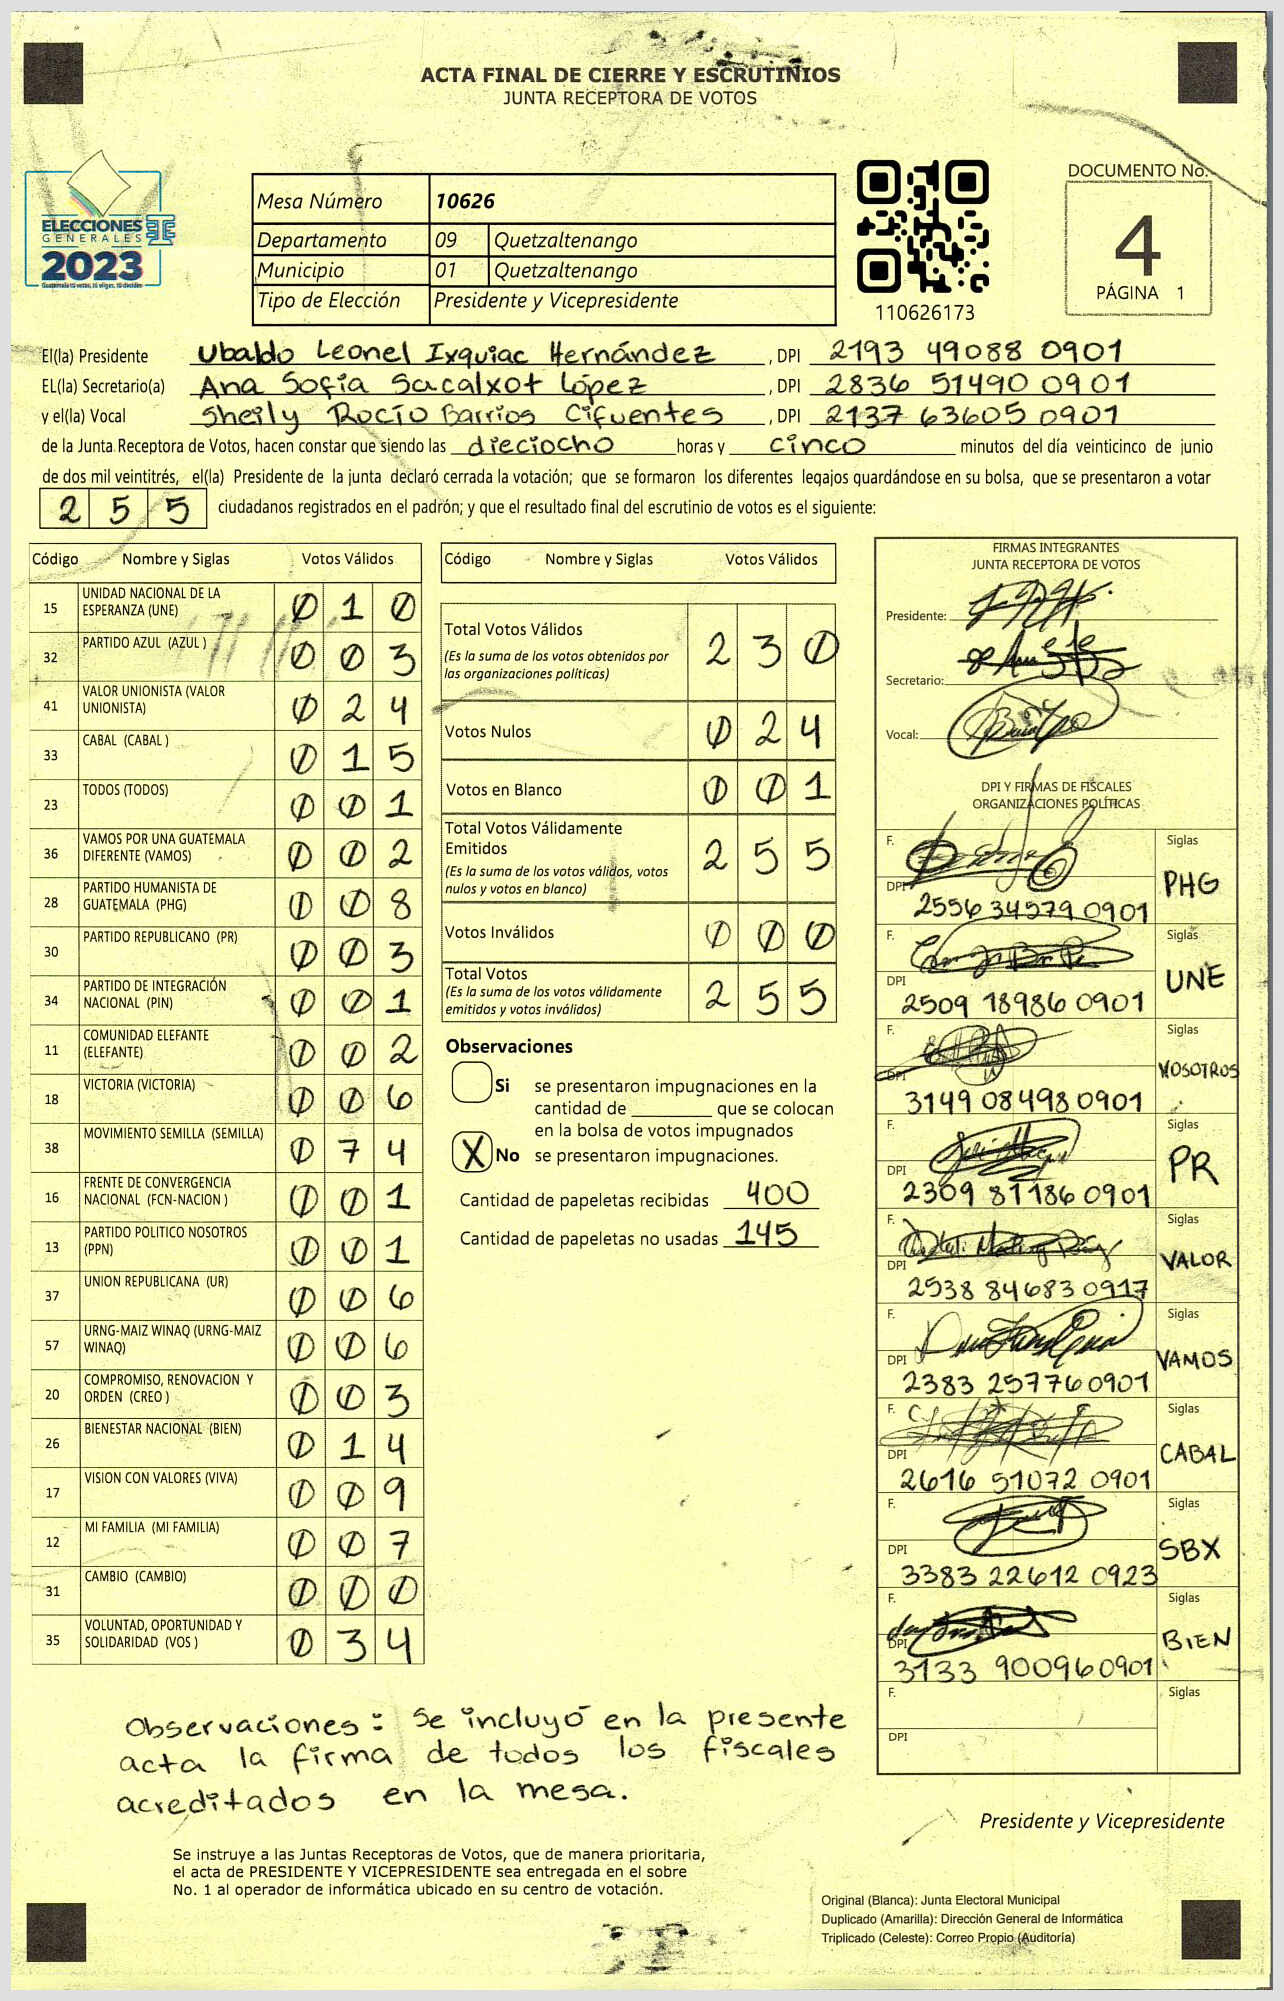 ACTA FINAL DE CIERRE Y ESCRUTINIOS
JUNTA RECEPTORA DE VOTOS
ELECCIONES
GENERALES
2023
Guatemala tú votas, tú eliges, tú decides
Mesa Número 10626
Departamento 09 Quetzaltenango
Municipio 01 Quetzaltenango
Tipo de Elección Presidente y Vicepresidente
110626173
DOCUMENTO No.
4
PÁGINA 1
El(la) Presidente Ubaldo Leonel Ixquiac Hernández , DPI 2193 49088 0901
EL(la) Secretario(a) Ana Sofía Sacalxot López , DPI 2836 51490 0901
y el(la) Vocal Sheily Rocío Barrios Cifuentes , DPI 2137 63605 0901
de la Junta Receptora de Votos, hacen constar que siendo las dieciocho horas y cinco minutos del día veinticinco de junio
de dos mil veintitrés, el(la) Presidente de la junta declaró cerrada la votación; que se formaron los diferentes legajos guardándose en su bolsa, que se presentaron a votar
2 5 5 ciudadanos registrados en el padrón; y que el resultado final del escrutinio de votos es el siguiente:
Código Nombre y Siglas Votos Válidos
15 UNIDAD NACIONAL DE LA ESPERANZA (UNE) 0 1 0
32 PARTIDO AZUL (AZUL ) 0 0 3
41 VALOR UNIONISTA (VALOR UNIONISTA) 0 2 4
33 CABAL (CABAL ) 0 1 5
23 TODOS (TODOS) 0 0 1
36 VAMOS POR UNA GUATEMALA DIFERENTE (VAMOS) 0 0 2
28 PARTIDO HUMANISTA DE GUATEMALA (PHG) 0 0 8
30 PARTIDO REPUBLICANO (PR) 0 0 3
34 PARTIDO DE INTEGRACIÓN NACIONAL (PIN) 0 0 1
11 COMUNIDAD ELEFANTE (ELEFANTE) 0 0 2
18 VICTORIA (VICTORIA) 0 0 6
38 MOVIMIENTO SEMILLA (SEMILLA) 0 7 4
16 FRENTE DE CONVERGENCIA NACIONAL (FCN-NACION ) 0 0 1
13 PARTIDO POLITICO NOSOTROS (PPN) 0 0 1
37 UNION REPUBLICANA (UR) 0 0 6
57 URNG-MAIZ WINAQ (URNG-MAIZ WINAQ) 0 0 6
20 COMPROMISO, RENOVACION Y ORDEN (CREO ) 0 0 3
26 BIENESTAR NACIONAL (BIEN) 0 1 4
17 VISION CON VALORES (VIVA) 0 0 9
12 MI FAMILIA (MI FAMILIA) 0 0 7
31 CAMBIO (CAMBIO) 0 0 0
35 VOLUNTAD, OPORTUNIDAD Y SOLIDARIDAD (VOS ) 0 3 4
Código Nombre y Siglas Votos Válidos
Total Votos Válidos 2 3 0
(Es la suma de los votos obtenidos por
las organizaciones políticas)
Votos Nulos 0 2 4
Votos en Blanco 0 0 1
Total Votos Válidamente
Emitidos 2 5 5
(Es la suma de los votos válidos, votos
nulos y votos en blanco)
Votos Inválidos 0 0 0
Total Votos 2 5 5
(Es la suma de los votos válidamente
emitidos y votos inválidos)
Observaciones
Si se presentaron impugnaciones en la
cantidad de ________ que se colocan
en la bolsa de votos impugnados
X No se presentaron impugnaciones.
Cantidad de papeletas recibidas 400
Cantidad de papeletas no usadas 145
FIRMAS INTEGRANTES
JUNTA RECEPTORA DE VOTOS
Presidente:
Secretario:
Vocal:
DPI Y FIRMAS DE FISCALES
ORGANIZACIONES POLÍTICAS
F. Siglas
DPI PHG
2556 34579 0901
F. Siglas
DPI UNE
2509 18986 0901
F. Siglas
DPI NOSOTROS
3149 08498 0901
F. Siglas
DPI PR
2309 81186 0901
F. Siglas
DPI VALOR
2538 84683 0917
F. Siglas
DPI VAMOS
2383 25776 0901
F. Siglas
DPI CABAL
2616 51072 0901
F. Siglas
DPI SBX
3383 22612 0923
F. Siglas
DPI BIEN
3133 90096 0901
F. Siglas
DPI
Observaciones: Se incluyó en la presente
acta la firma de todos los fiscales
acreditados en la mesa.
Presidente y Vicepresidente
Se instruye a las Juntas Receptoras de Votos, que de manera prioritaria,
el acta de PRESIDENTE Y VICEPRESIDENTE sea entregada en el sobre
No. 1 al operador de informática ubicado en su centro de votación.
Original (Blanca): Junta Electoral Municipal
Duplicado (Amarilla): Dirección General de Informática
Triplicado (Celeste): Correo Propio (Auditoría)